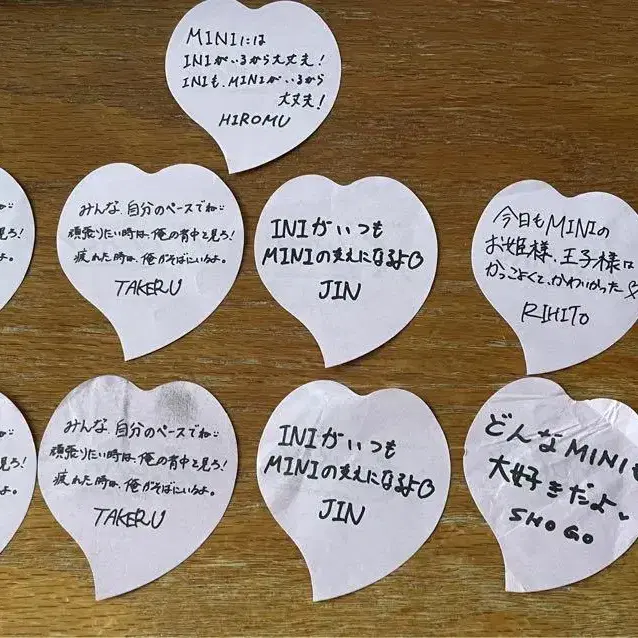 MINIには
INIがいるから大丈夫!
INIも、MINIがいるから
大丈夫!
HIROMU
見ろ!
よ。
みんな、自分のペースでね
頑張りたい時は、俺の背中を見ろ!
疲れた時は、俺がそばにいるよ。
TAKERU
INIがいつも
MINIの支えになるよ
JIN
今日もMINIの
お姫様、王子様は
かっこよくて、かわいかった♡
RIHITO
見ろ!
よ。
みんな、自分のペースでね
頑張りたい時は、俺の背中を見ろ!
疲れた時は、俺がそばにいるよ。
TAKERU
INIがいつも
MINIの支えになるよ
JIN
どんなMINIも
大好きだよ♥
SHOGO